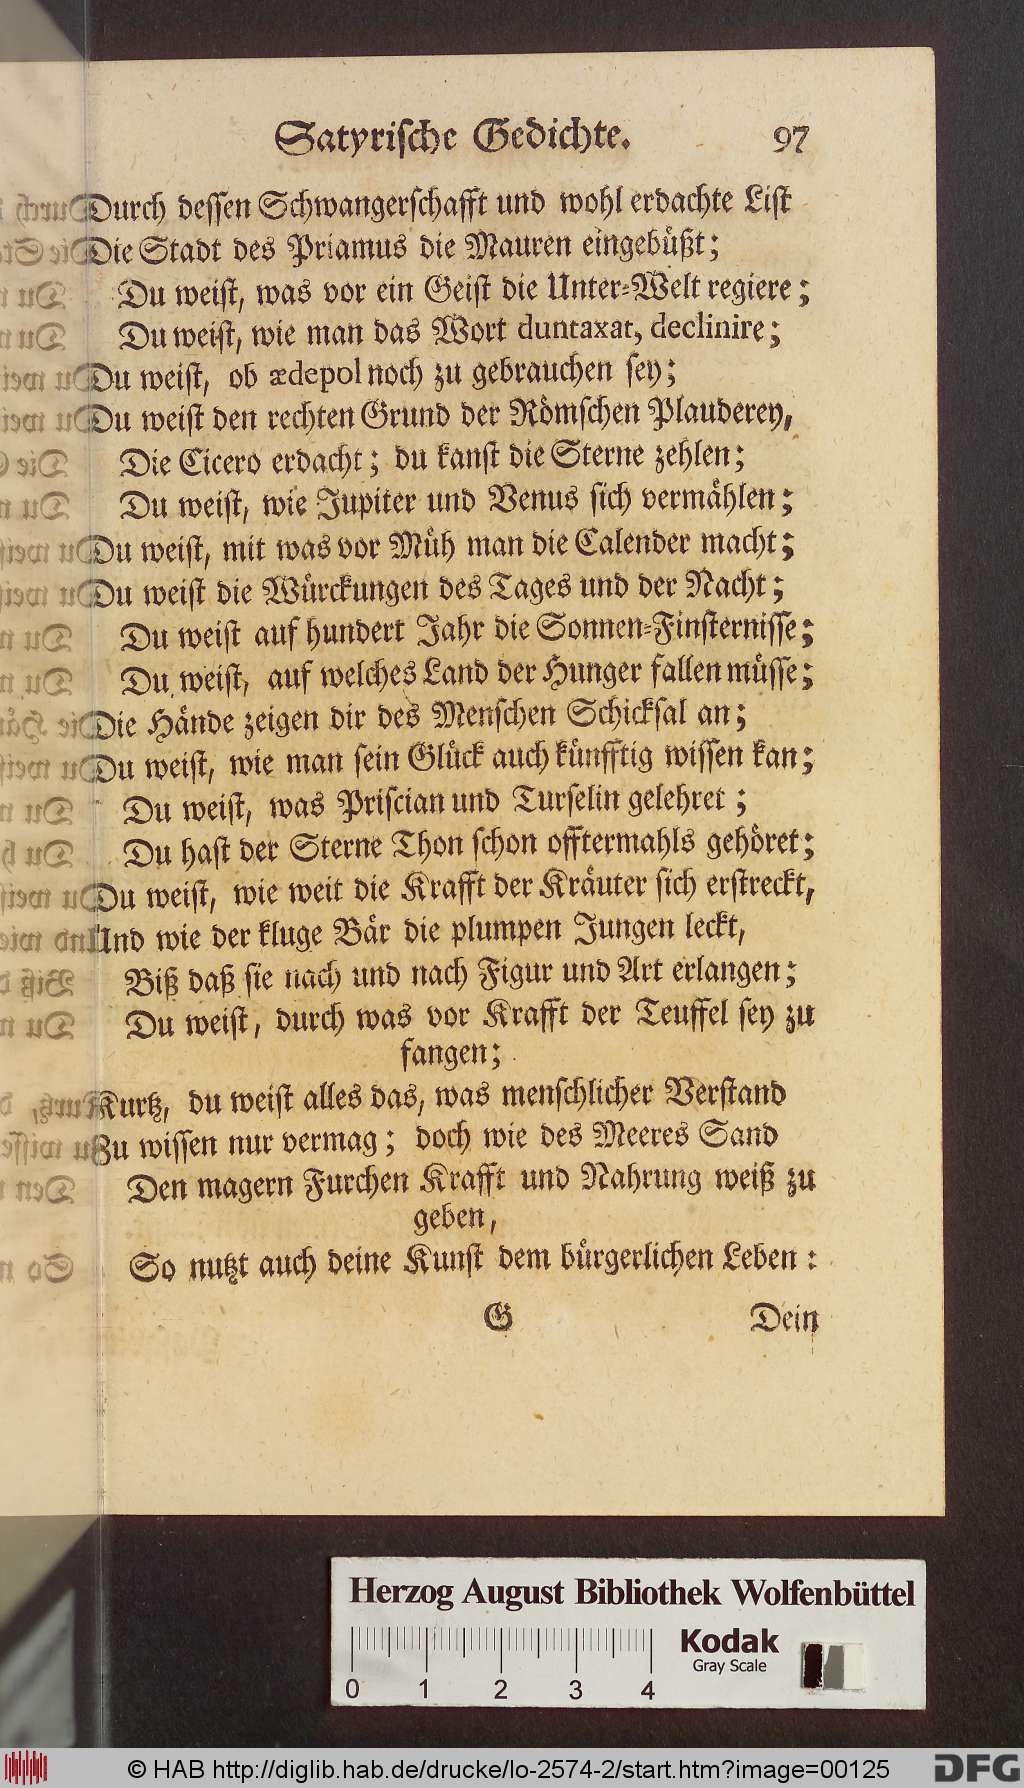 Satyrische Gedichte. 97
Durch dessen Schwangerschafft und wohl erdachte List
Die Stadt des Priamus die Mauren eingebüßt;
Du weist, was vor ein Geist die Unter-Welt regiere;
Du weist, wie man das Wort duntaxat, declinire;
Du weist, ob ædepol noch zu gebrauchen sey;
Du weist den rechten Grund der Römschen Plauderey,
Die Cicero erdacht; du kanst die Sterne zehlen;
Du weist, wie Jupiter und Venus sich vermählen;
Du weist, mit was vor Müh man die Calender macht;
Du weist die Würckungen des Tages und der Nacht;
Du weist auf hundert Jahr die Sonnen-Finsternisse;
Du weist, auf welches Land der Hunger fallen müsse;
Die Hände zeigen dir des Menschen Schicksal an;
Du weist, wie man sein Glück auch künfftig wissen kan;
Du weist, was Priscian und Turselin gelehret;
Du hast der Sterne Thon schon offtermahls gehöret;
Du weist, wie weit die Krafft der Kräuter sich erstreckt,
Und wie der kluge Bär die plumpen Jungen leckt,
Biß daß sie nach und nach Figur und Art erlangen;
Du weist, durch was vor Krafft der Teuffel sey zu
fangen;
Kurtz, du weist alles das, was menschlicher Verstand
Zu wissen nur vermag; doch wie des Meeres Sand
Den magern Furchen Krafft und Nahrung weiß zu
geben,
So nutzt auch deine Kunst dem bürgerlichen Leben:
G Dein
Herzog August Bibliothek Wolfenbüttel
Kodak
Gray Scale
0 1 2 3 4
© HAB http://diglib.hab.de/drucke/lo-2574-2/start.htm?image=00125
DFG